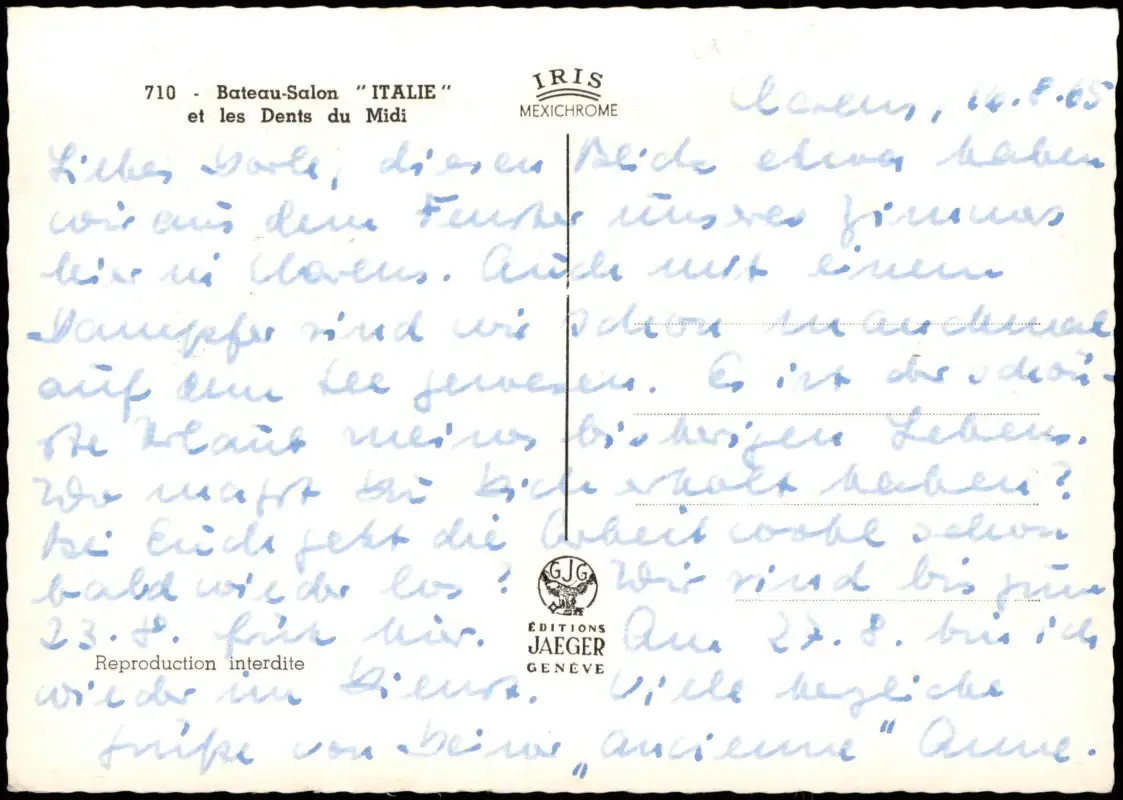 710 - Bateau-Salon "ITALIE"
et les Dents du Midi
IRIS
MEXICHROME
Clarens, 16.8.65
Liebes Dorle, diesen Blick etwa haben
wir aus dem Fenster unseres Zimmers
hier in Clarens. Auch mit einem
Dampfer sind wir schon manchmal
auf dem See gewesen. Es ist der schön-
ste Urlaub meines bisherigen Lebens.
Wo magst Du Dich erholt haben?
Bei Euch geht die Arbeit wohl schon
bald wieder los? Wir sind bis zum
23.8. früh hier. Am 27.8. bin ich
wieder im Dienst. Viele herzliche
Grüße von Deiner „ancienne" Anne.
GJG
ÉDITIONS
JAEGER
GENÈVE
Reproduction interdite